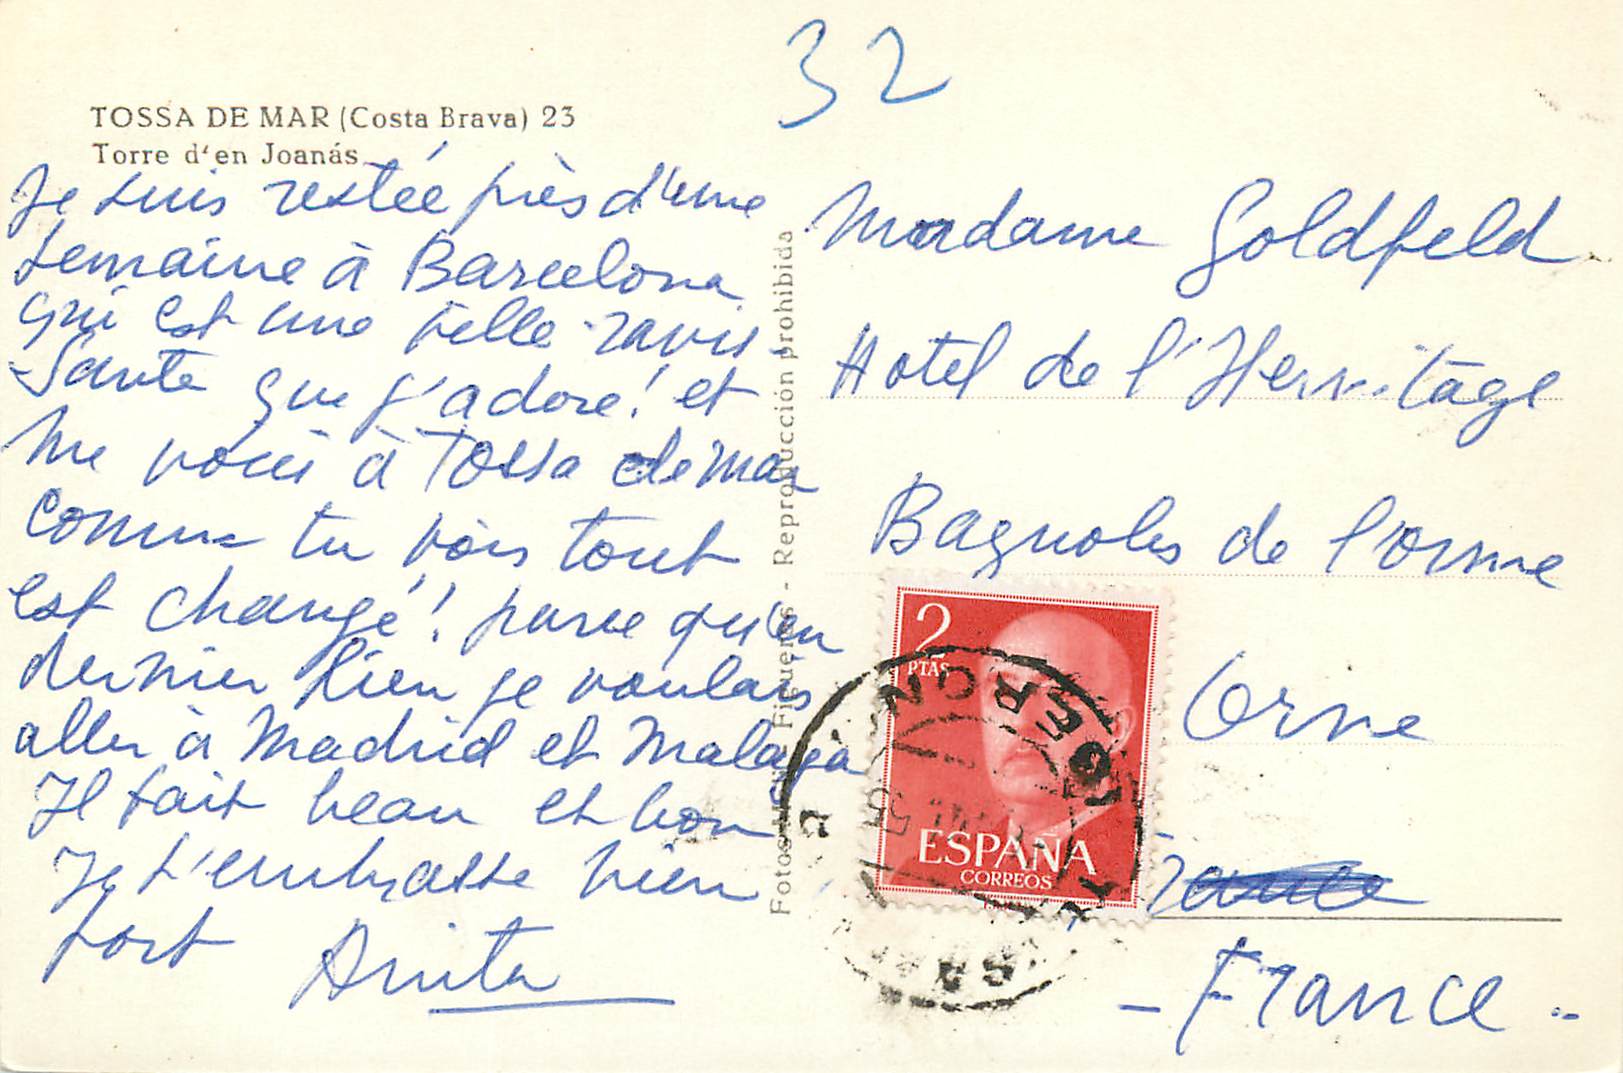 32
TOSSA DE MAR (Costa Brava) 23
Torre d'en Joanás
Je suis restée près d'une
semaine à Barcelona
qui est une ville ravis-
sante que j'adore! et
me voici à Tossa de mar
comme tu vois tout
est changé! parce qu'en
dernier lieu je voulais
aller à Madrid et Malaga
Il fait beau et bon
Je t'embrasse bien
fort Anita
Fotos Figueras - Reproducción prohibida
Madame Goldfeld
Hotel de l'Hermitage
Bagnoles de l'orne
Orne
France
- France -
2
PTAS
ESPAÑA
CORREOS
GERONA